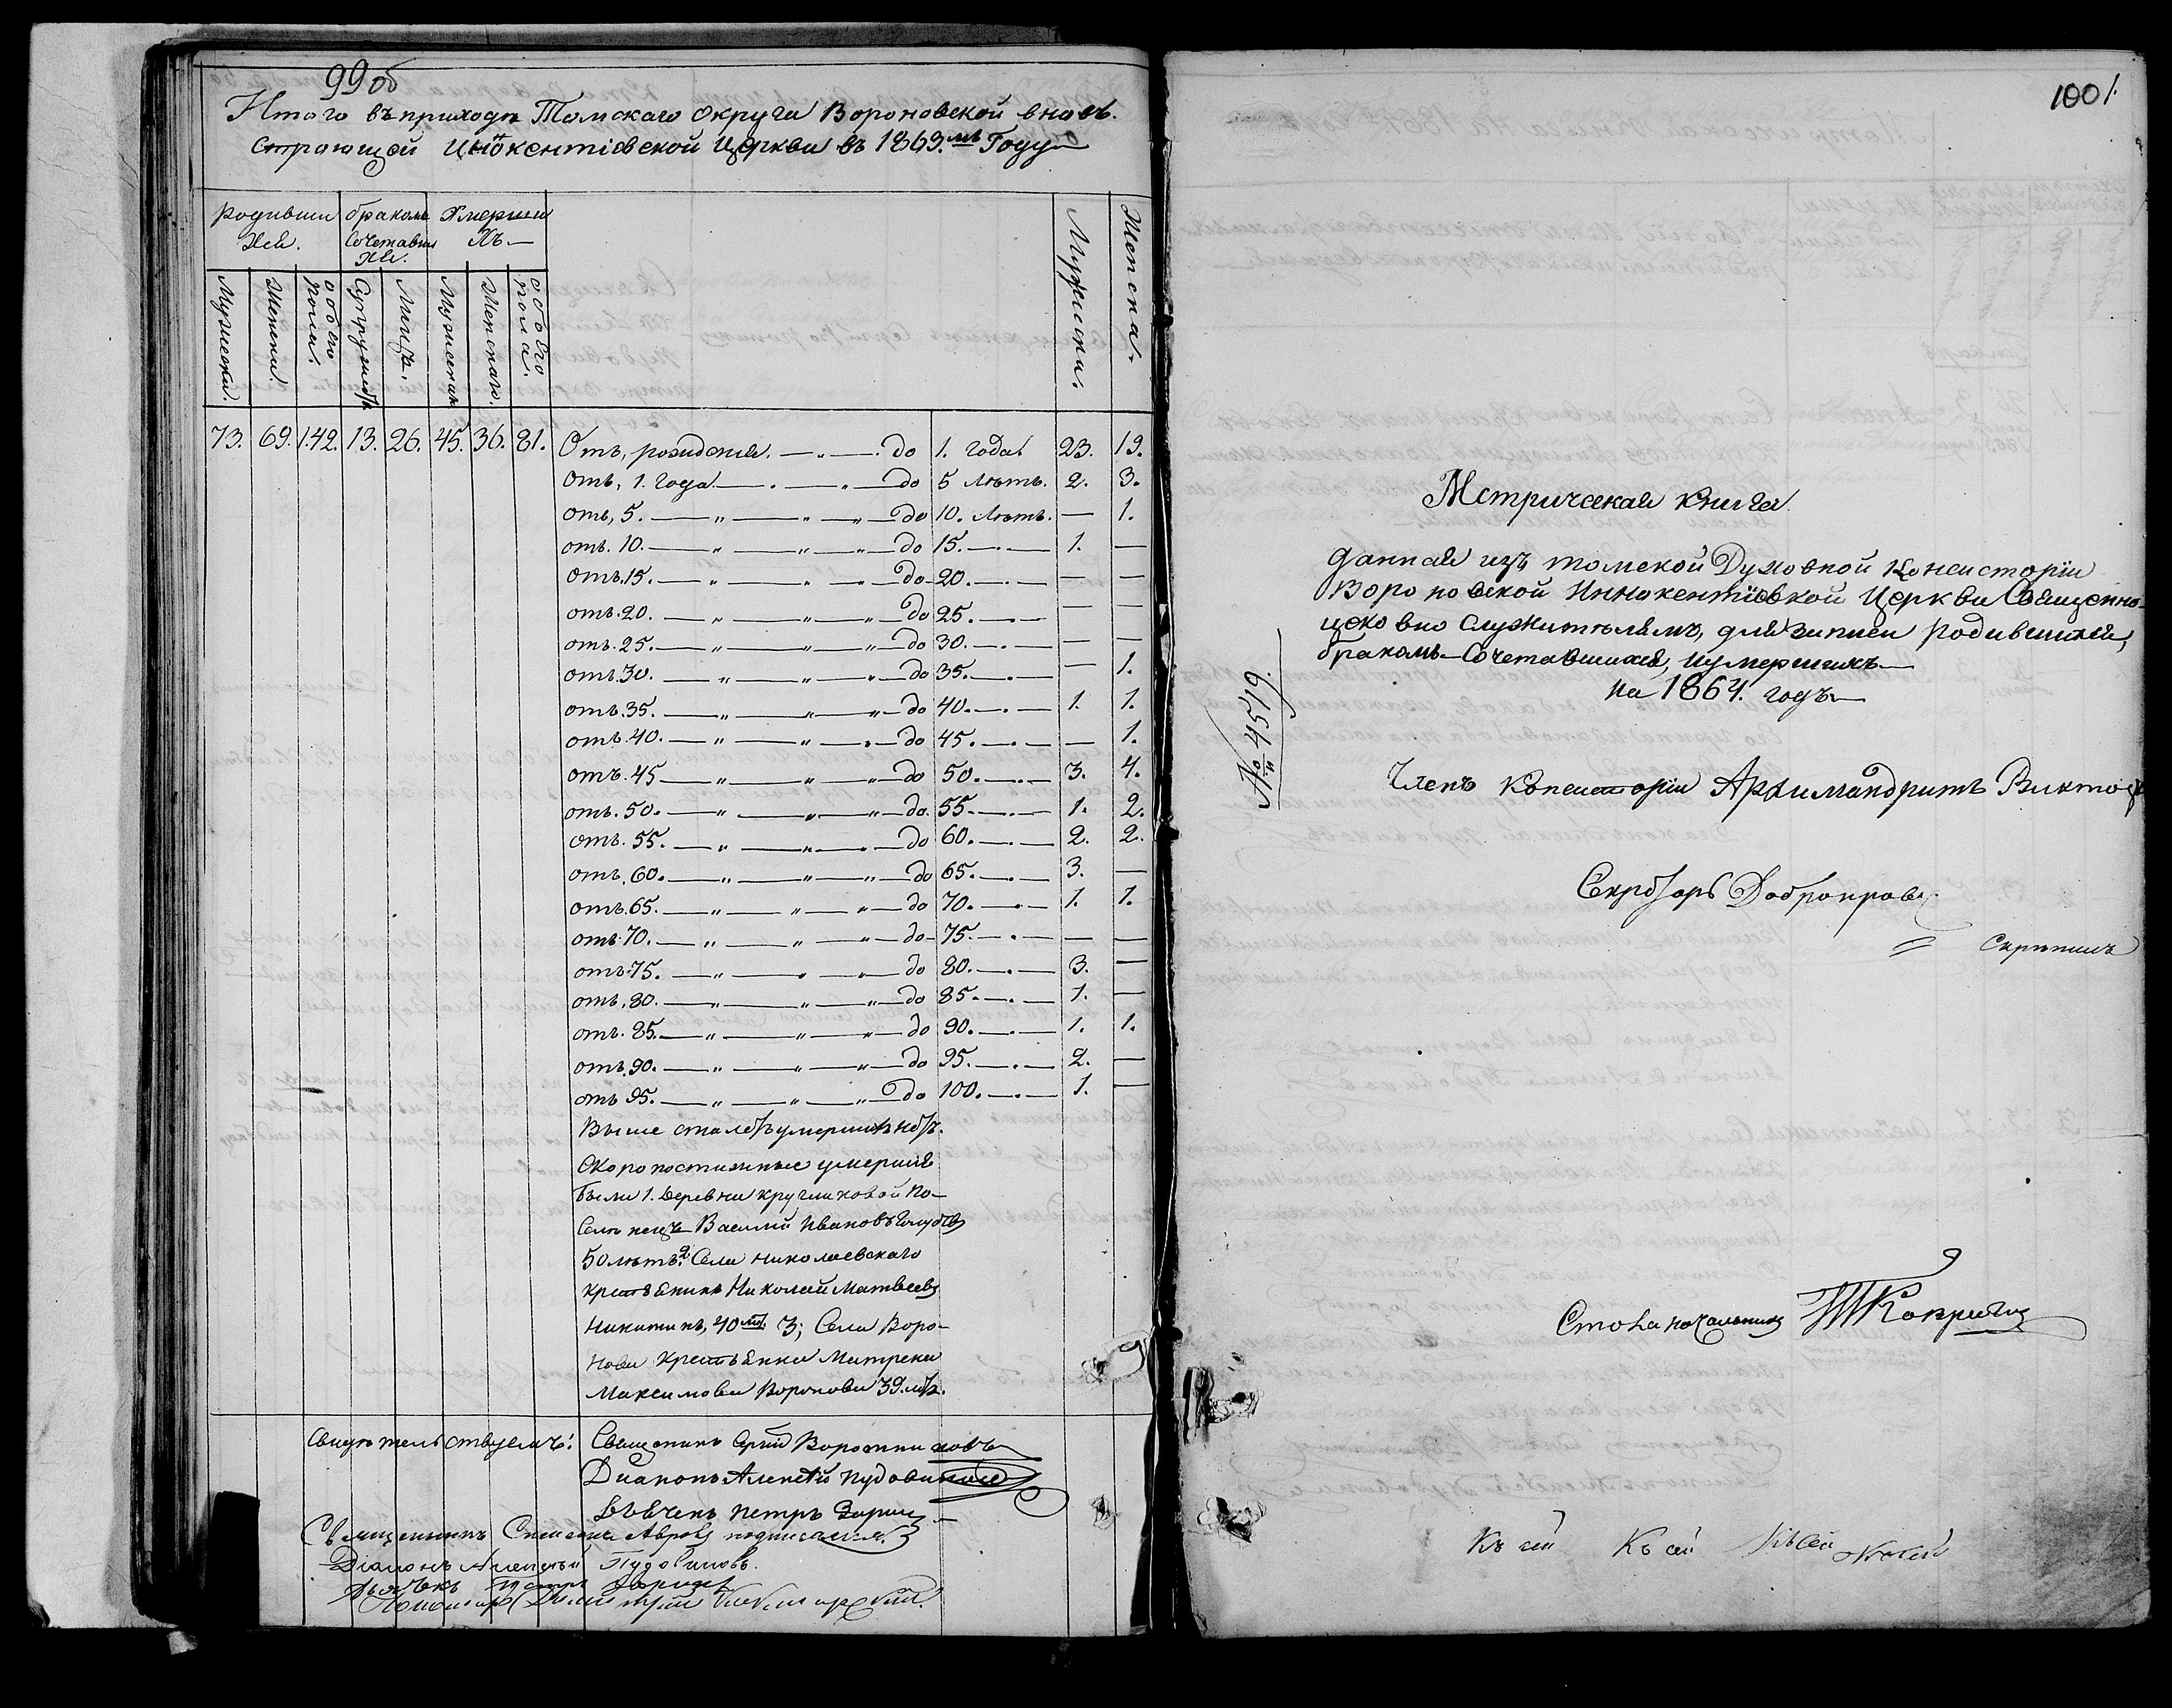 99 об
Итого въ приходѣ Томскаго Округа Вороновской вновь
строющей Иннокентіевской Церкви въ 1863.мъ Году
Родивши
хся.
бракомъ
Сочетавши
хся.
Умерши
хъ —
Мужески.
Женски.
обоего
пола.
Супружествъ
Лицъ.
Мужескаго
Женскаго.
обоего
пола.
Мужска.
Женска.
73. 69. 142. 13. 26. 45. 36. 81.
Отъ, рожденія. — „ — до 1. года 23. 19.
Отъ, 1. года — „ — до 5 лѣтъ. 2. 3.
отъ, 5. — „ — „ — до 10. лѣтъ. — 1.
отъ. 10. — „ — „ — до 15. — 1. —
отъ. 15. — „ — „ — до 20. — — —
отъ. 20. — „ — „ — до 25. — — —
отъ. 25. — „ — „ — до 30. — — —
отъ. 30. — „ — „ — до 35. — — 1.
отъ. 35. — „ — „ — до 40. — 1. 1.
отъ. 40. — „ — „ — до 45. — — 1.
отъ. 45 — „ — „ — до 50. — 3. 4.
отъ. 50. — „ — „ — до 55. — 1. 2.
отъ. 55. — „ — „ — до 60. — 2. 2.
отъ. 60. — „ — „ — до 65. — 3. —
отъ. 65. — „ — „ — до 70. — 1. 1.
отъ. 70. — „ — „ — до 75. — — —
отъ. 75. — „ — „ — до 80. — 3. —
отъ. 80. — „ — „ — до 85. — 1. —
отъ. 85. — „ — „ — до 90. — 1. 1.
отъ. 90. — „ — „ — до 95. — 2. —
отъ 95. — „ — „ — до 100. — 1. —
Выше ста лѣтъ умершихъ нѣтъ.
Скоропостижные умершія
были 1. Деревни Кругликовой по-
селенецъ Василій Ивановъ
50 лѣтъ. 2. Села Николаевскаго
крестьянинъ Николай Матвеевъ
Никитинъ, 40 лѣт. 3; Села Воро-
нова крестьянка Матрена
Максимова Воронова 39. лѣтъ.
Свидѣтельствуемъ: Священникъ Сергій Воротниковъ
Диаконъ Алексѣй Пудовиковъ
Дьячекъ Петръ Зоринъ
Священникъ Симеонъ Авровъ подписался.
Діаконъ Алексѣй Пудовиковъ.
Дьячекъ Петръ Зоринъ
Пономарь Димитрій
1001.
Метрическая Книга
Данная изъ томской Духовной Консисторіи
Вороновской Иннокентіевской Церкви Священно-
церковно служителямъ, для записи родившихся,
бракомъ-Сочетавшихся, и умершихъ —
на 1864. годъ —
№ 4519.
Членъ Консисторіи Архимандритъ Викторъ
Секретарь Добронравовъ
Скрѣпилъ
Столоначальникъ
Къ сей Къ сей Къ сей Къ сей